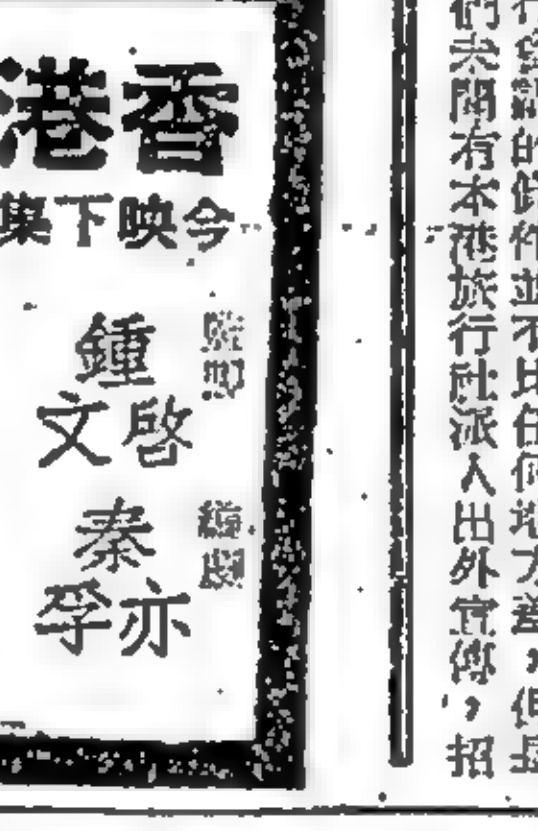 香港
今映下集
監製
鍾啓文
編劇
秦亦孚
行發觀的條件並不比任何地方差，但是
們未聞有本港旅行社派人出外宣傳，招